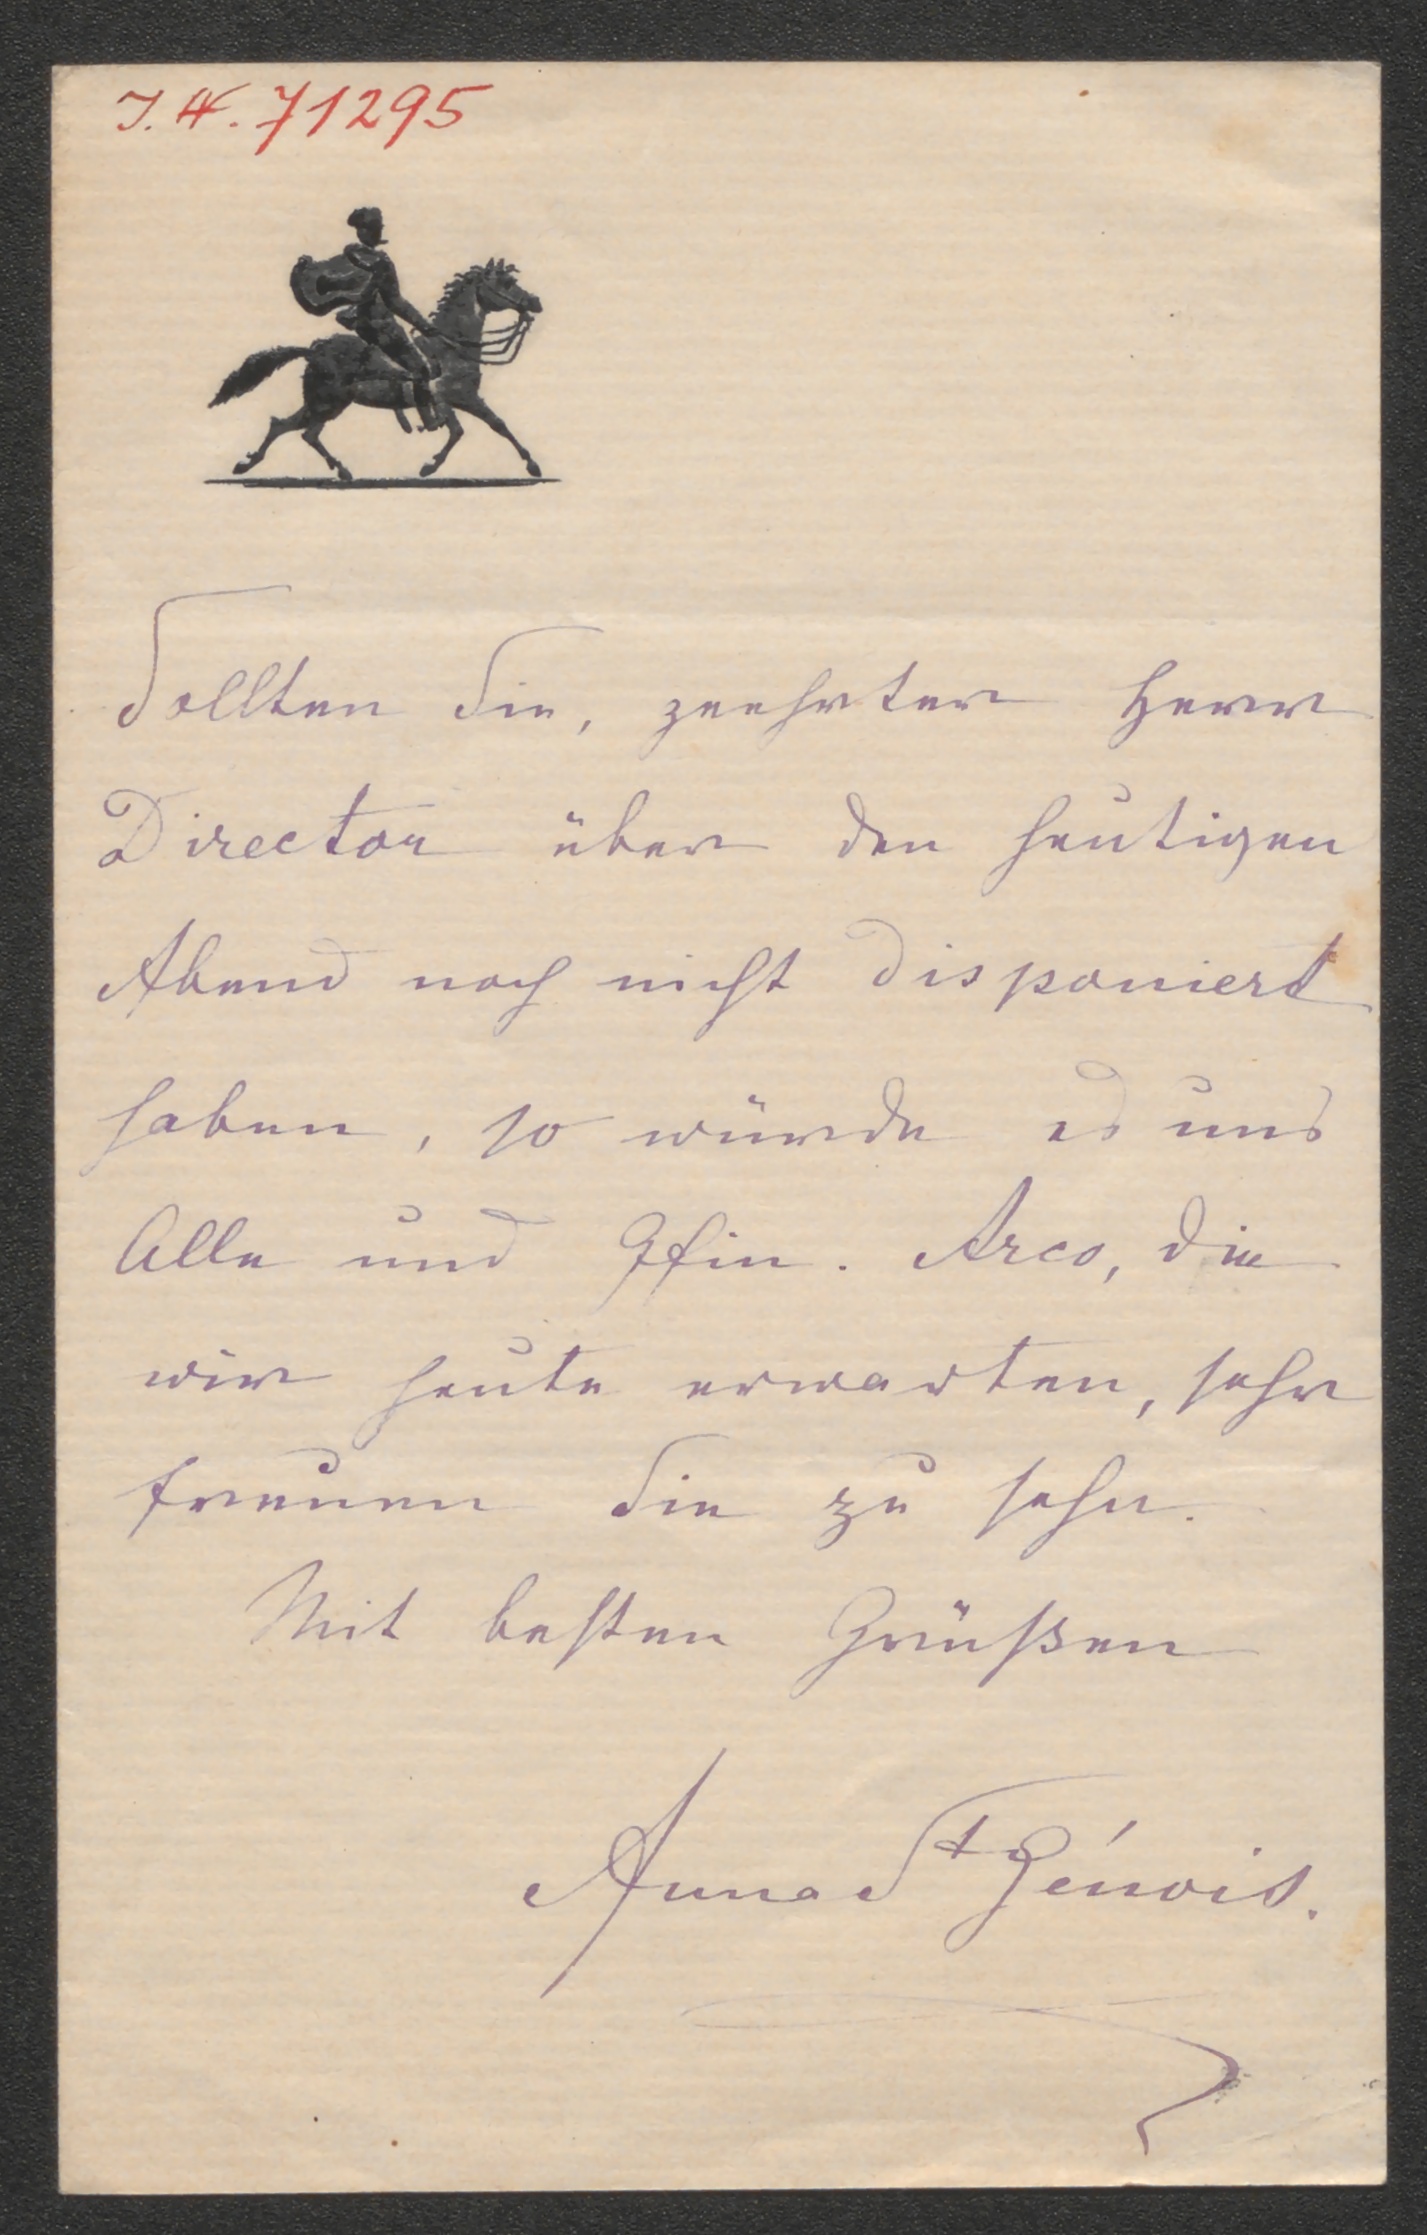 J.N. 71295
Sollten Sie, geehrter Herr
Director über den heutigen
Abend noch nicht disponiert
haben, so würde es uns
Alle und Gfin. Arco, die
wir heute erwarten, sehr
freuen Sie zu sehn.
Mit besten Grüßen
Anna St Génois.